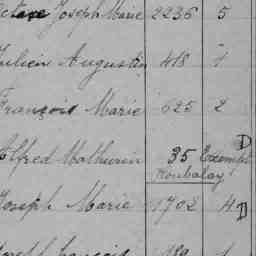 Joseph Marie 2236 5
Julien Augustin 418 1
François Marie 625 2
Alfred Mathurin 35 Exempt D
Joseph Marie 1702 4 D